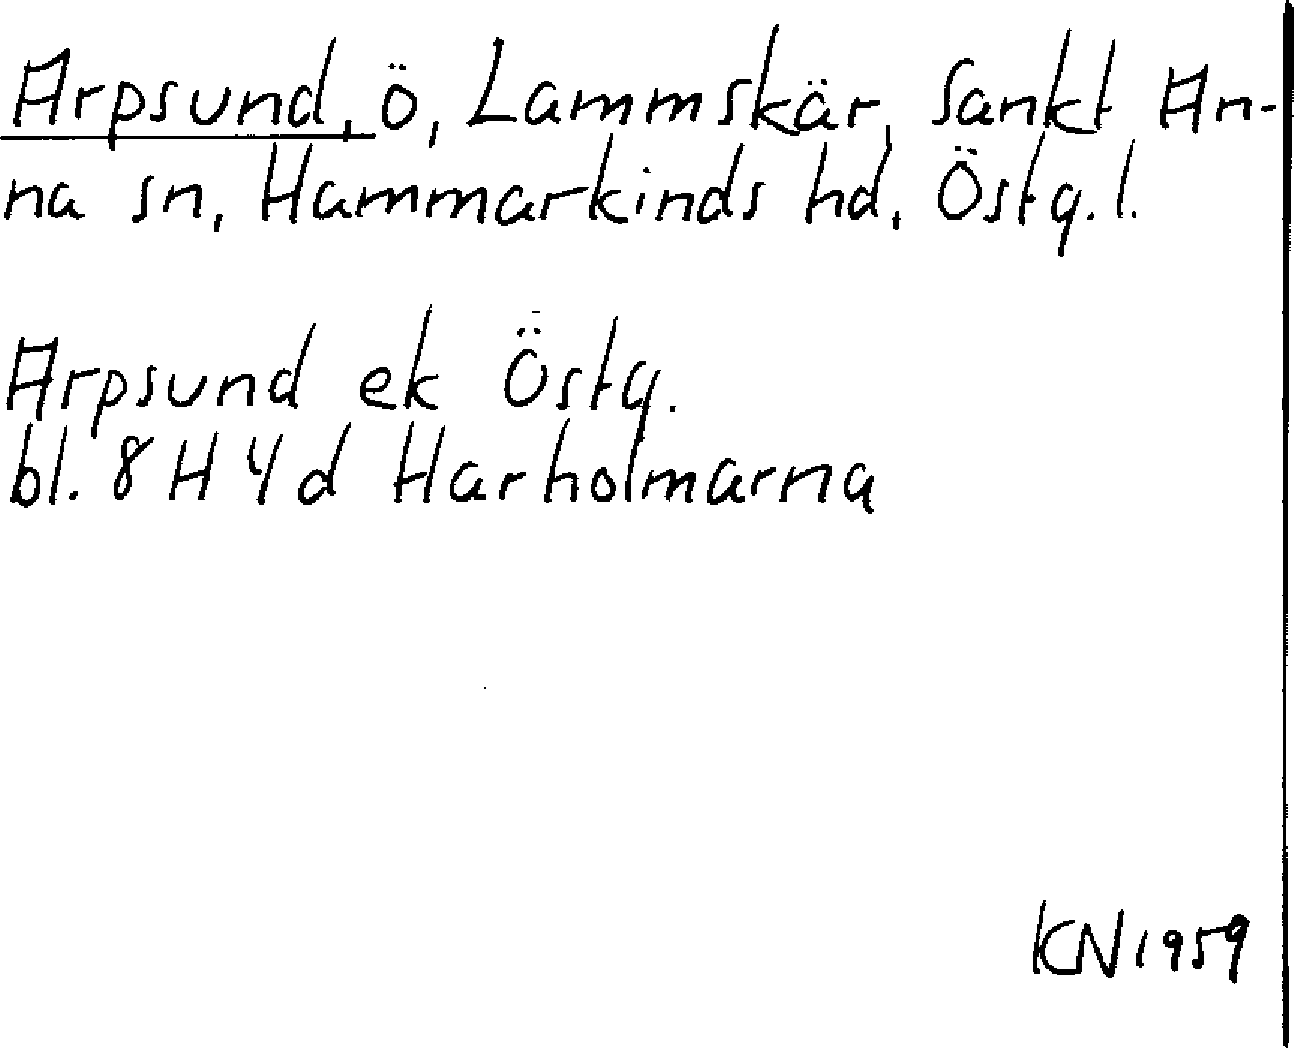 Arpsund, ö, Lammskär, Sankt An-
na sn, Hammarkinds hd, Östg. l.
Arpsund ek Östg.
bl. 8 H 4 d Harholmarna
KN 1959